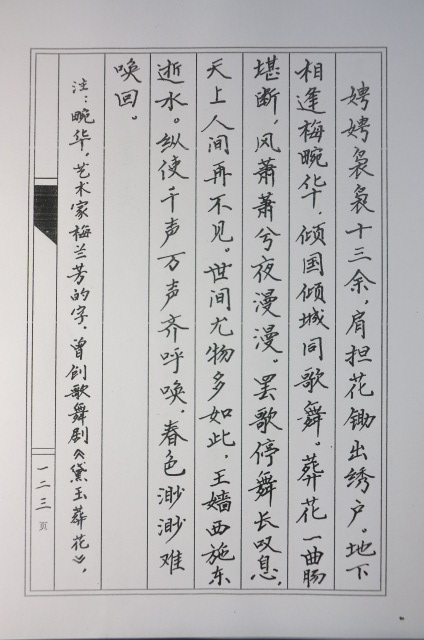 娉娉袅袅十三余，肩担花锄出绣户。地下
相逢梅畹华，倾国倾城同歌舞。葬花一曲肠
堪断，风萧萧兮夜漫漫。罢歌停舞长叹息，
天上人间再不见。世间尤物多如此，王嫱西施东
逝水。纵使千声万声齐呼唤，春色渺渺难
唤回。
注：畹华，艺术家梅兰芳的字，曾创歌舞剧《黛玉葬花》，
一二三页